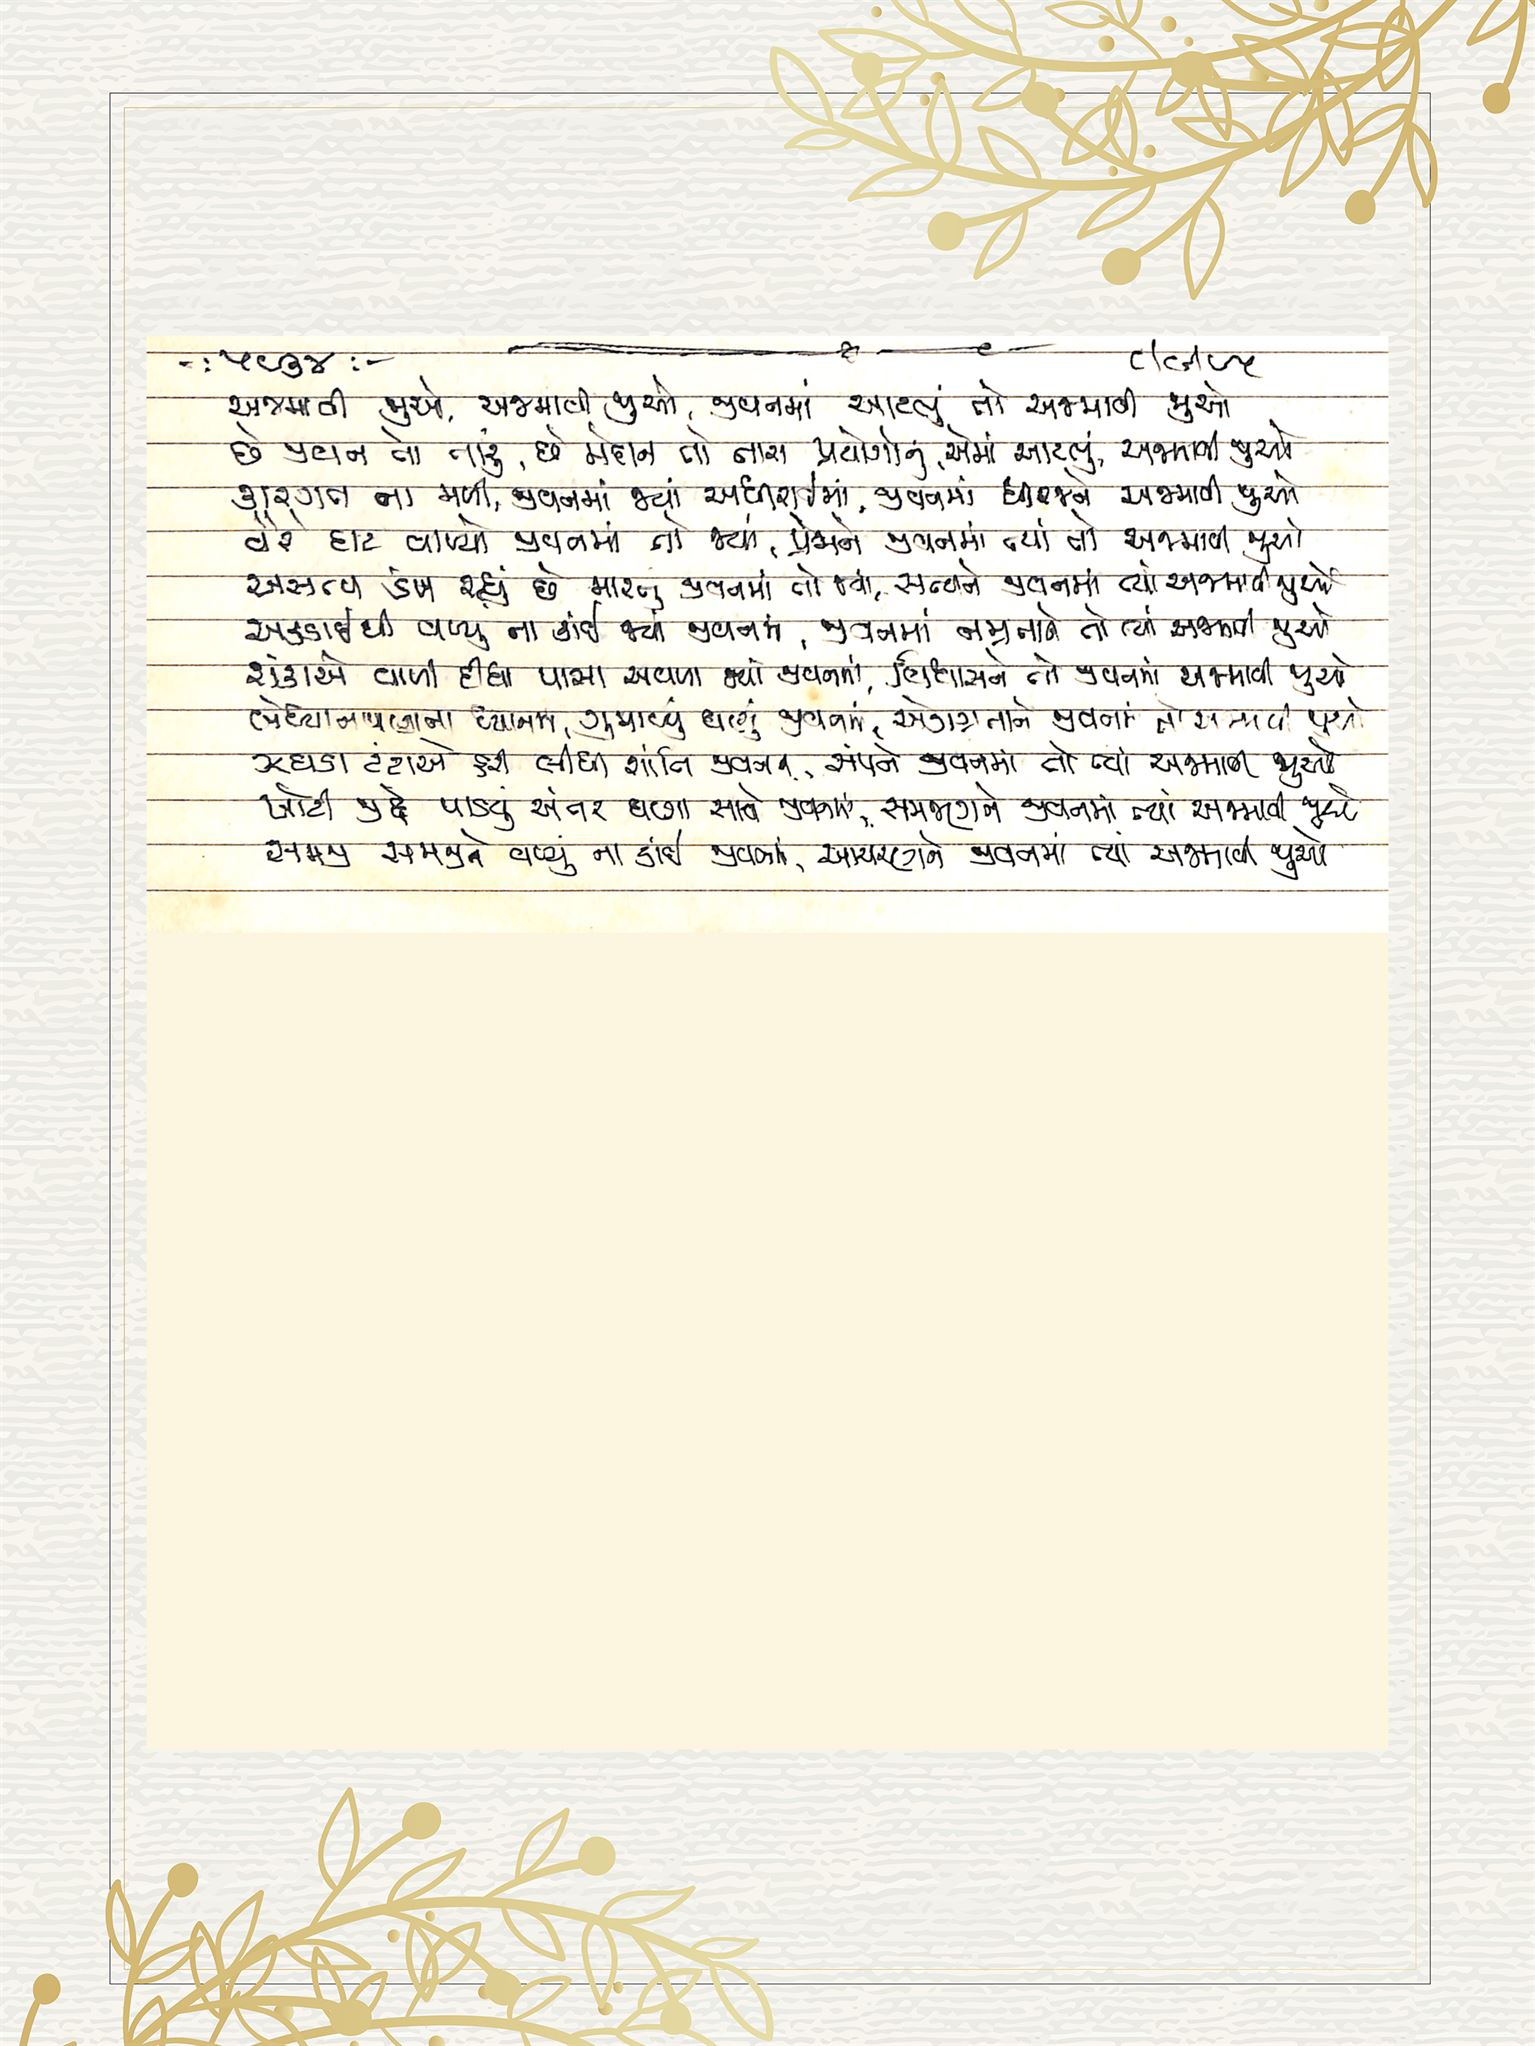 -: ૫૯૩૪ :-
અજમાવી જુઓ, અજમાવી જુઓ, જીવનમાં આટલું તો અજમાવી જુઓ
છે જીવન તો તારું, છે મેદાન તો તારા પ્રયોગોનું, એમાં આટલું, અજમાવી જુઓ
કારગત ના મળી, જીવનમાં જ્યાં અધીરાઈમાં, જીવનમાં ધીરજને અજમાવી જુઓ
વેરે દાટ વાળ્યો જીવનમાં તો જ્યાં, પ્રેમને જીવનમાં ત્યાં તો અજમાવી જુઓ
અસત્ય ડંખ રહ્યું છે મારતું જીવનમાં તો જ્યાં, સત્યને જીવનમાં ત્યાં અજમાવી જુઓ
અકડાઈથી વળ્યું ના કાંઈ જ્યાં જીવનમાં, જીવનમાં નમ્રતાને તો ત્યાં અજમાવી જુઓ
શંકાએ વાળી દીધા પાસા અવળા જ્યાં જીવનમાં, વિશ્વાસને તો જીવનમાં અજમાવી જુઓ
બેધ્યાનપણાના ધ્યાનમાં, ગુમાવ્યું ઘણું જીવનમાં, એકાગ્રતાને જીવનમાં તો અજમાવી જુઓ
ઝઘડા ટંટાએ હરી લીધી શાંતિ જીવનની, સંપને જીવનમાં તો ત્યાં અજમાવી જુઓ
ખોટી જીદે પાડયું અંતર ઘણા સાથે જીવનમાં, સમજણને જીવનમાં ત્યાં અજમાવી જુઓ
સમજી સમજીને વળ્યું ના કાંઈ જીવનમાં, આચરણને જીવનમાં ત્યાં અજમાવી જુઓ